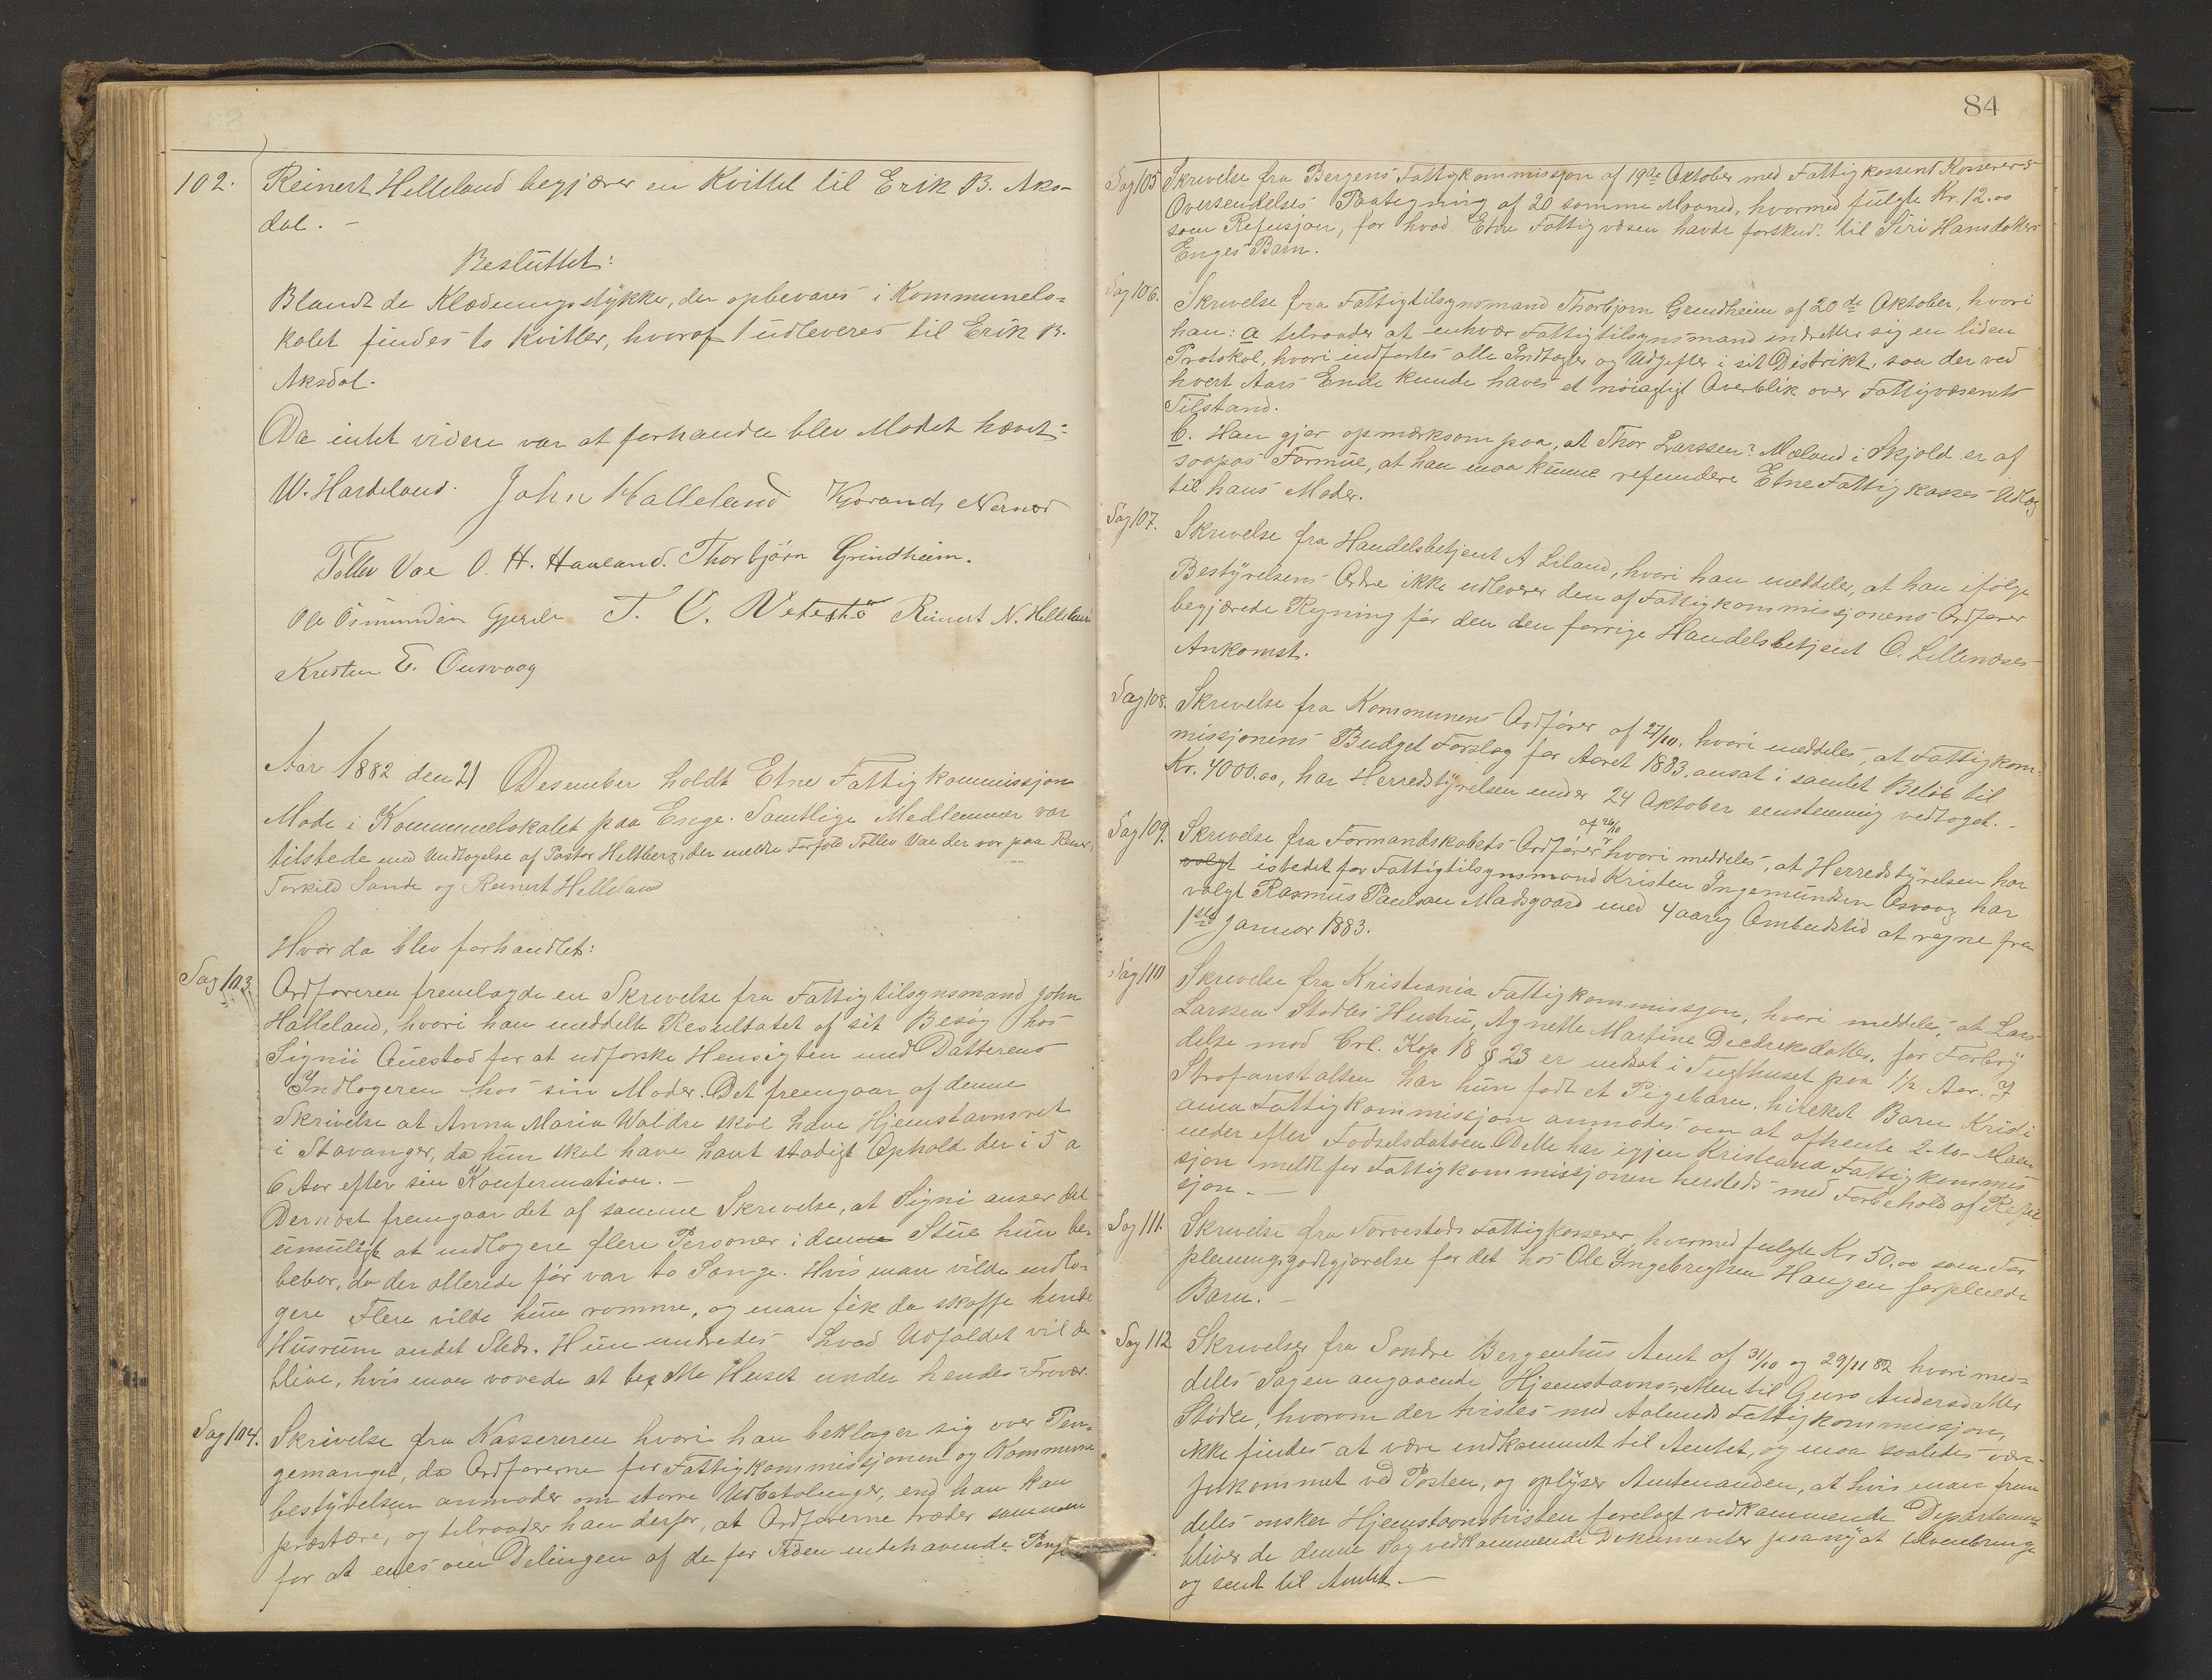 102. Reinert Helleland begjærer en Kvittel til Erik B. Aks-
dal. -
Besluttet:
Blandt de Klædningsstykker, der opbevares i Kommunelo-
kalet findes to Kvitler, hvoraf 1 udleveres til Erik B.
Aksdal.
Da intet videre var at forhandle blev Mødet hævet:
W. Hardeland. John Halleland Gjorand Nernes
Tollev Vae O. H. Haaland. Thorbjørn Grindheim.
Ole Osmundsen Gjerde T. O. Vetestø Reinert N. Helleland
Kristen E. Ousvaag
Aar 1882 den 21 Desember holdt Etne Fattigkommissjon
Møde i Kommunelokalet paa Enge. Samtlige Medlemmer var
tilstede med Undtagelse af Pastor Heltberg, der meldte Forfald Tollev Vae der var paa Reise,
Torkild Sande og Reinert Helleland
Hvor da blev forhandlet:
Sag 103. Ordføreren fremlagde en Skrivelse fra Fattigtilsynsmand John
Halleland, hvori han meddelte Resultatet af sit Besøg hos
Signii Auestad for at udforske Hensigten med Datterens
Indlogeren hos sin Moder. Det fremgaar af denne
Skrivelse at Anna Maria Waldre skal have Hjemstavnsret
i Stavanger, da hun skal have havt stadigt Ophold der i 5 a
6 Aar efter sin Konfirmation. -
Dernæst fremgaar det af samme Skrivelse, at Signi anser det
umuligt at indlogere flere Personer i denne Stue hun be-
bebor, da der allerede før var to Senge. Hvis man vilde indlo-
gere Flere vilde hun rømme, og man fik da skaffe hende
Husrum andet Steds. Hun undredes hvad Udfaldet vil da
blive, hvis man vovede at besætte Huset under hendes Fravær.
Sag 104. Skrivelse fra Kassereren hvori han beklager sig over Pen-
gemangel, da Ordførerne for Fattigkommissjonen og Kommune
bestyrelsen anmoder om større Udbetalinger, end han kan
præstere, og tilraader han derfor, at Ordførerne træder sammen
for at enes om Delingen af de for Tiden indehavende Penge
84
Sag 105 Skrivelse fra Bergens Fattigkommissjon af 19de Oktober med Fattigkassens Kasserers
Oversendelses Paategning af 20 samme Maaned, hvormed fulgte Kr. 12.00
som Refusjon, for hvad Etne Fattigvæsen havde forskud. til Siri Hansdotter
Enges Barn.
Sag 106. Skrivelse fra Fattigtilsynsmand Thorbjørn Grindheim af 20de Oktober, hvori
han: a tilraader at enhver Fattigtilsynsmand indretter sig en liden
Protokol, hvori indførtes alle Indtægter og Udgifter i sit Distrikt, saa der ved
hvert Aars Ende kunde haves et nøiagtigt Overblik over Fattigvæsenets
Tilstand.
b. Han gjør opmærksom paa, at Thor Larssen? Mæland i Skjold er af
saapas Formue, at han maa kunne refundere Etne Fattigkasses Udlæg
til hans Moder.
Sag 107. Skrivelse fra Handelsbetjent A Liland, hvori han meddeler, at han ifølge
Bestyrelsens Ordre ikke udleverer den af Fattigkommissjonens Ordfører
begjærede Regning før den den forrige Handelsbetjent O. Lillenæses
Ankomst.
Sag 108. Skrivelse fra Kommunens Ordfører af 27/10, hvori meddeles, at Fattigkom-
missjonens Budget Forslag for Aaret 1883, ansat i samlet Beløb til
Kr. 4000.00, har Herredstyrelsen under 24 Oktober enstemmig vedtaget. -
Sag 109. Skrivelse fra Formandskabets Ordfører af 26/10 hvori meddeles, at Herredstyrelsen har
valgt istedet for Fattigtilsynsmand Kristen Ingemundsen Osvaag har
valgt Rasmus Paulson Madsgaard med 4aarig Ombudstid at regne fra
1ste Januar 1883.
Sag 110 Skrivelse fra Kristiania Fattigkommissjon, hvori meddeles, at Lars
Larssen Stødles Hustru, Agnette Martine Diedriksdatter, for Forbry-
delse mod Crl. Kap 18 § 23 er indsat i Tugthuset paa 1½ Aar. I
Strafanstalten har hun født et Pigebarn, hvilket Barn Kristi
ania Fattigkommissjon anmodes om at afhente 2-to- Maa-
neder efter Fødselsdatoen. Dette har igjen Kristiania Fattigkommis
sjon meldt for Fattigkommissjonen hersteds med Forbehold af Refu
sjon. -
Sag 111. Skrivelse fra Torvestads Fattigkasserer, hvormed fulgte Kr 50.00 som For
pleiningsgodtgjørelse for det hos Ole Ingebregtsen Haugen forpleiede
Barn. -
Sag 112 Skrivelser fra Søndre Bergenhus Amt af 31/10 og 29/11 82 hvori med-
deles Sagen angaaende Hjemstavnsretten til Guro Andersdatter
Stødle, hvorom der tvistes med Aalunds Fattigkommissjon,
ikke findes at være indkommet til Amtet, og maa saaledes være
forkommet ved Posten, og oplyser Amtmanden, at hvis man frem
deles ønsker Hjemstavnstvisten forelagt vedkommende Departement
bliver de denne Sag vedkommende Dokumenter paany at tilveiebringe
og sendt til Amtet. -